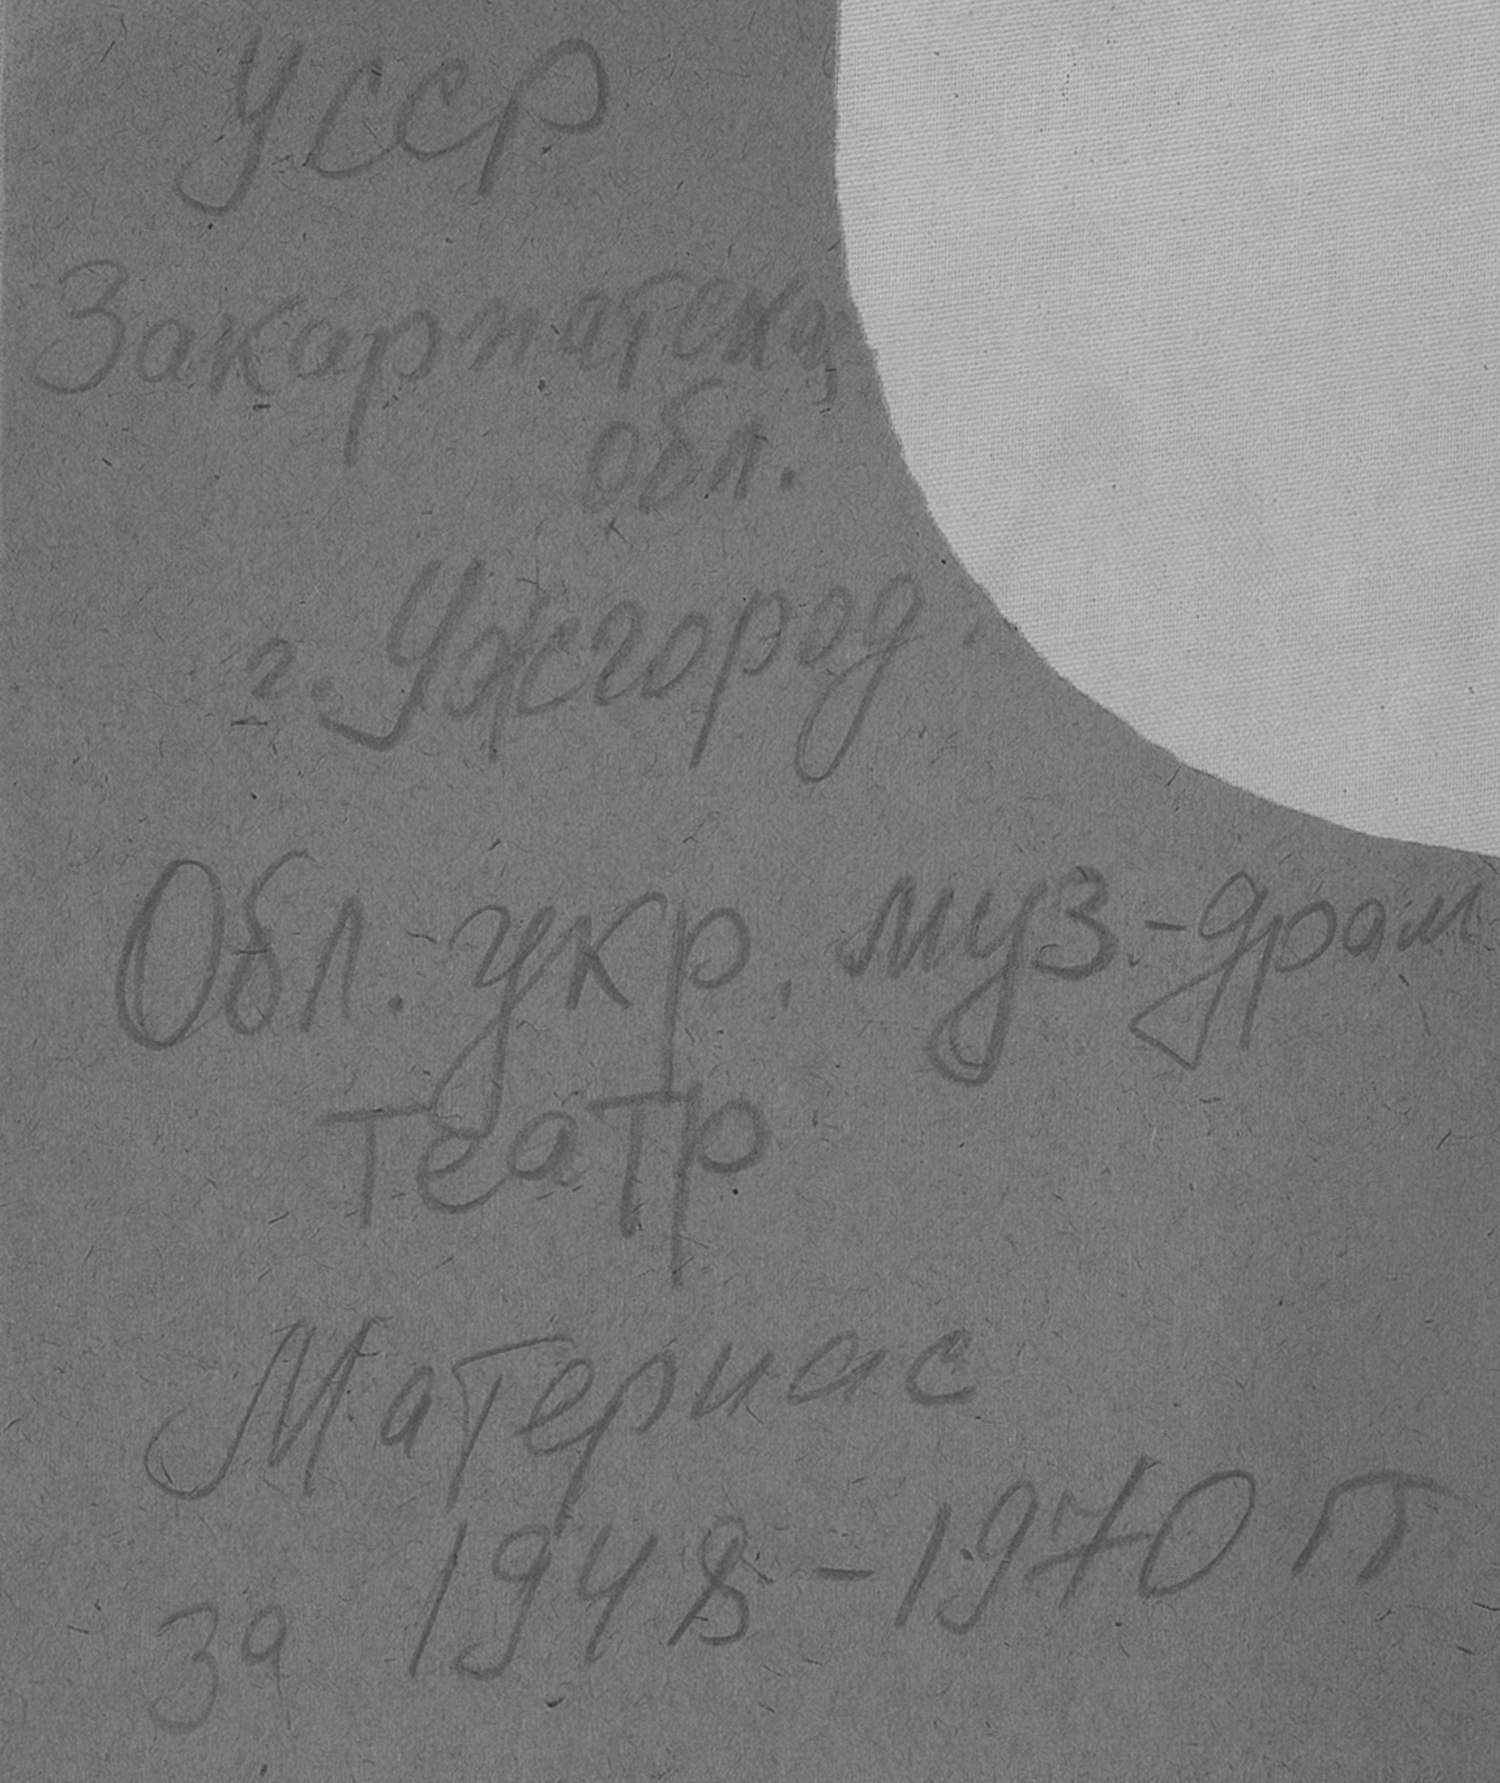 УССР
Закарпатска
обл.
г. Ужгород.
Обл. укр. муз.-драм
театр
Материас
за 1948-1970 гг